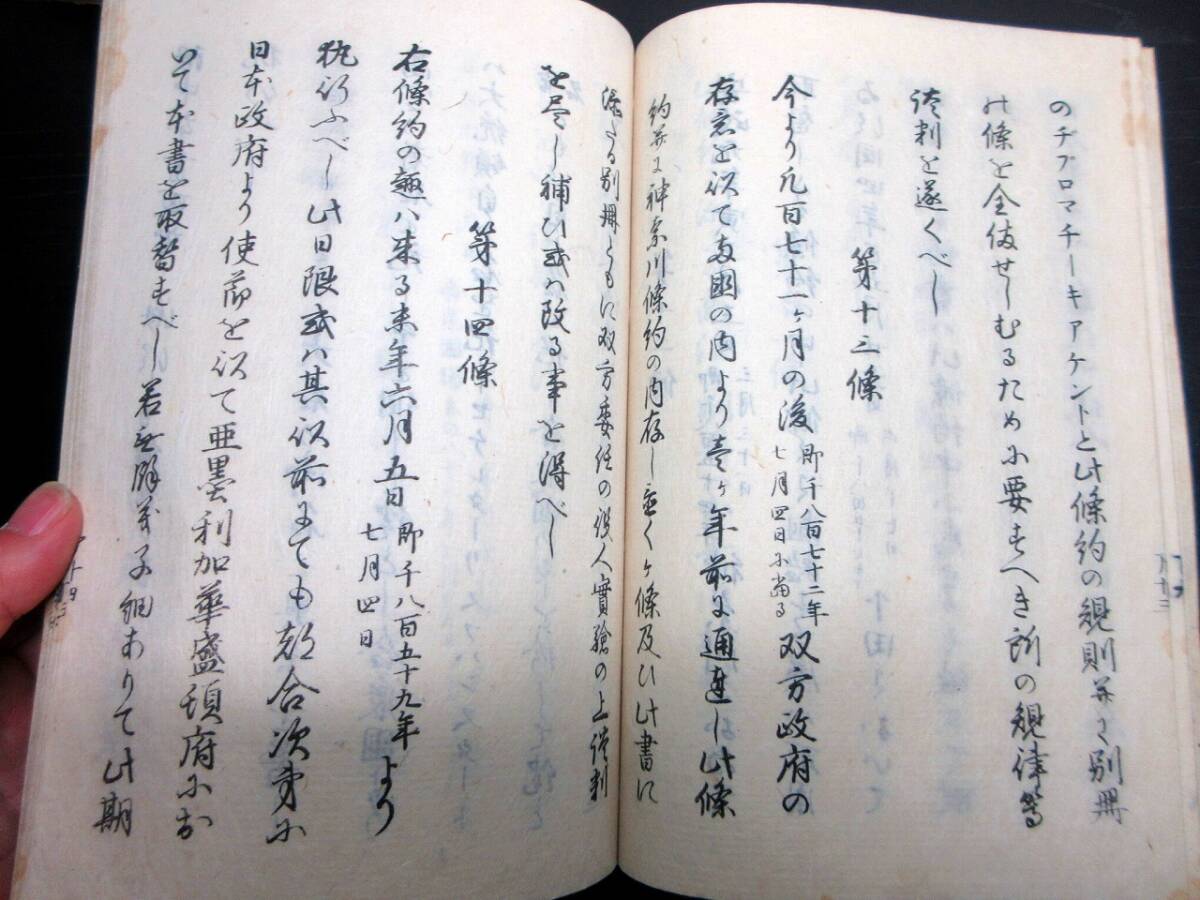 のヂプロマチーキアケントと此條約の規則并に別冊
の條を全備せしむるために要すへき所の規律等
談判を遂くべし
第十三條
今より凡百七十一ヶ月の後 即千八百七十二年七月四日に當る 双方政府の
存意を以て両國の内より壱ヶ年前に通達し此條
約并に神奈川條約の内存し置くヶ條及ひ此書に
添たる別冊ともに双方委任の役人實驗の上談判
を尽し補ひ或ハ改る事を得べし
第十四條
右條約の趣ハ来る未年六月五日 即千八百五十九年七月四日 より
執行ふべし此日限或ハ其以前にても都合次第に
日本政府より使節を以て亜墨利加華盛頓府にお
いて本書を取替すべし若無餘義子細ありて此期